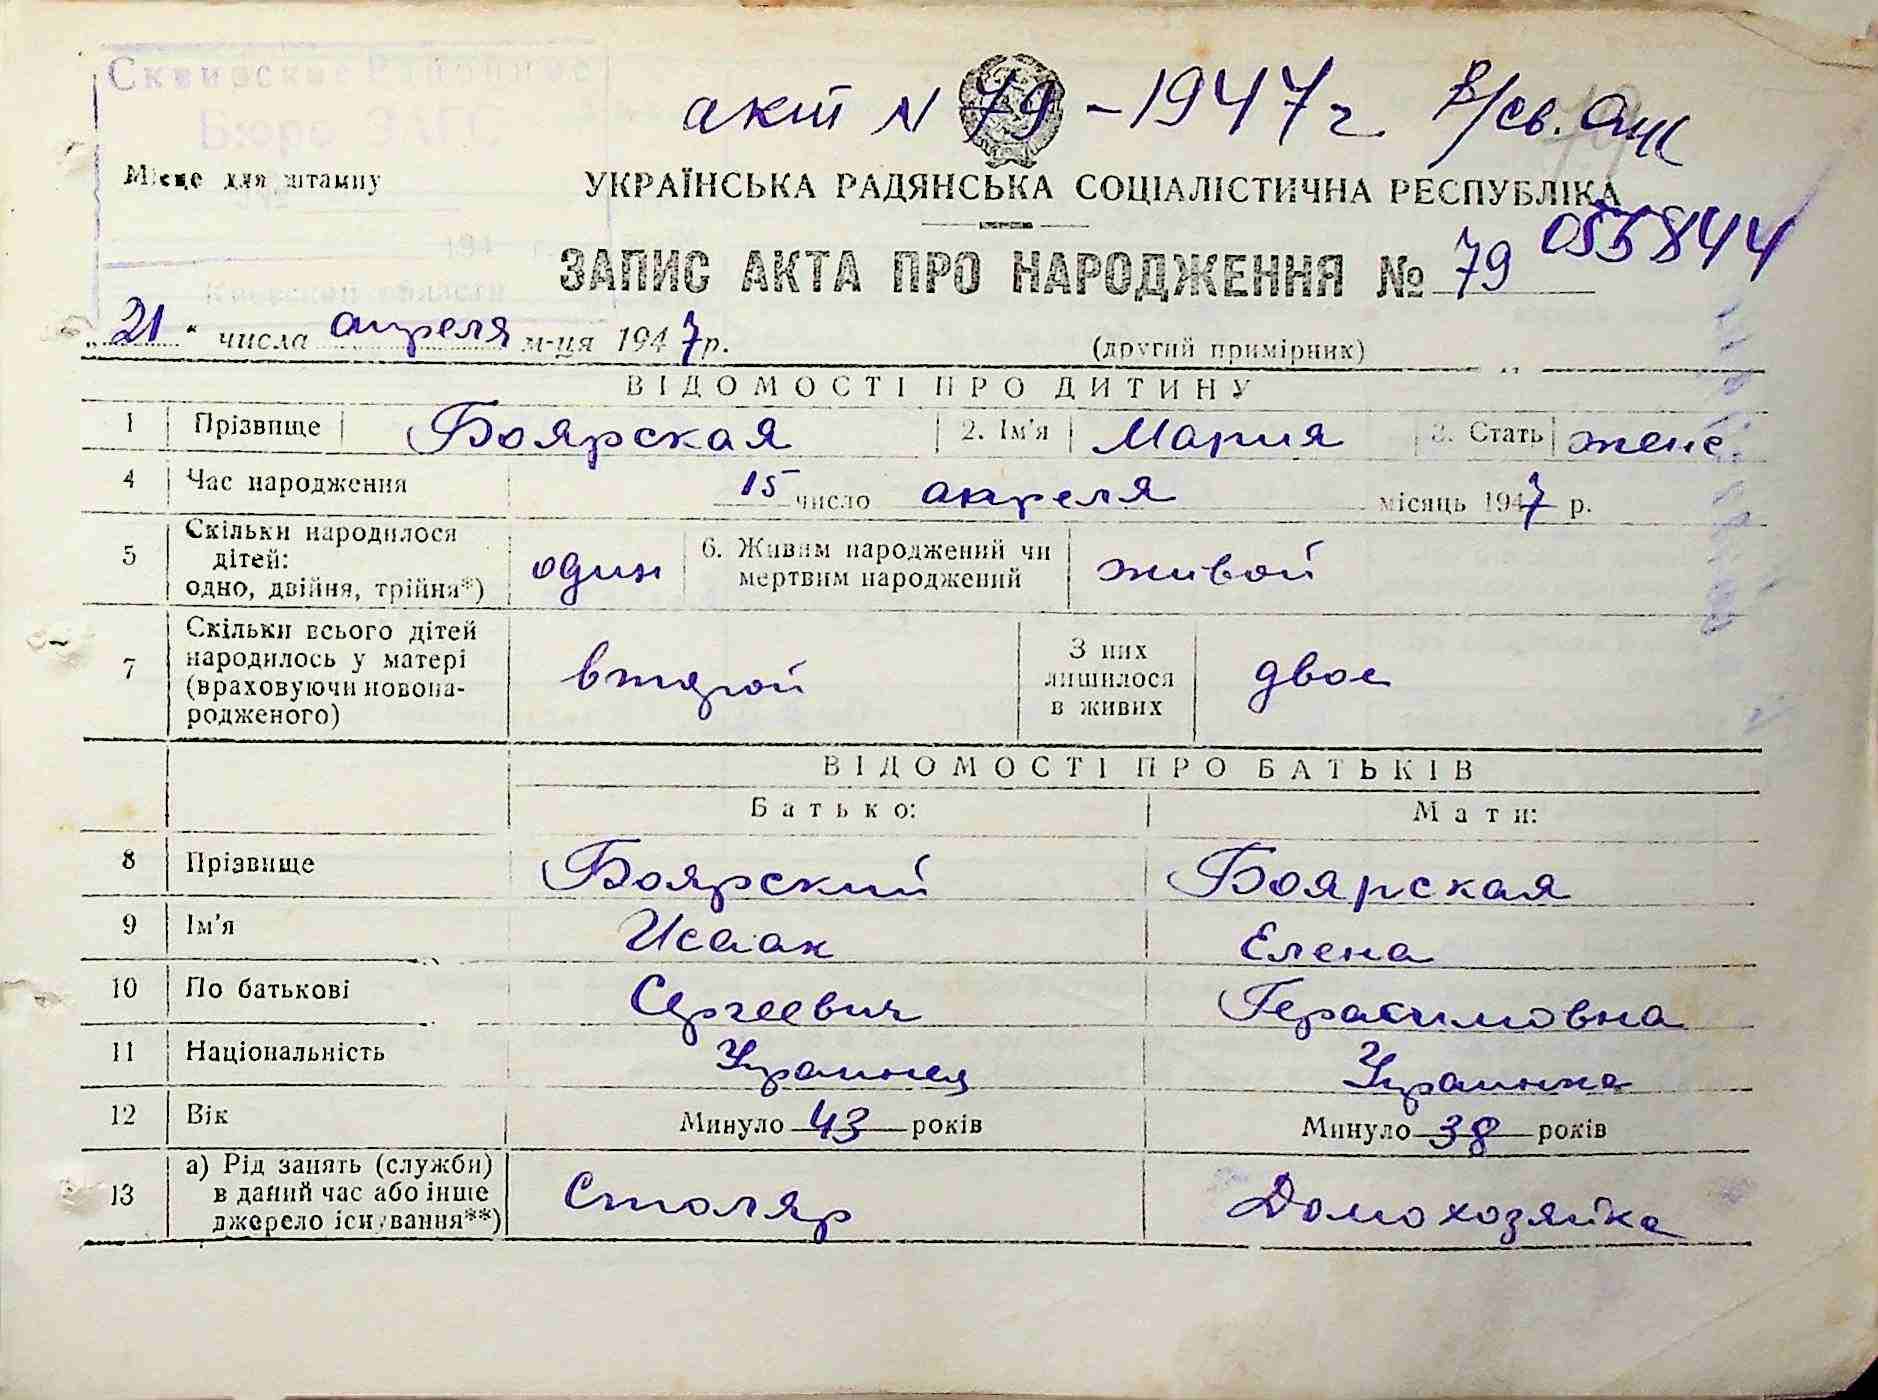 Сквирское Районное
Бюро ЗАГС
акт N 79 - 1947 г. В/св.
Місце для штампу
УКРАЇНСЬКА РАДЯНСЬКА СОЦІАЛІСТИЧНА РЕСПУБЛІКА
194 г.
Киевской области
ЗАПИС АКТА ПРО НАРОДЖЕННЯ № 79 055844
„21“ числа апреля м-ця 1947 р.
(другий примірник)
ВІДОМОСТІ ПРО ДИТИНУ
1 Прізвище Боярская 2. Ім'я Мария 3. Стать женс.
4 Час народження 15 число апреля місяць 1947 р.
5 Скільки народилося дітей: одно, двійня, трійня*) один 6. Живим народжений чи мертвим народжений живой
7 Скільки всього дітей народилось у матері (враховуючи новонародженого) второй З них лишилося в живих двое
ВІДОМОСТІ ПРО БАТЬКІВ
Батько: Мати:
8 Прізвище Боярский Боярская
9 Ім'я Исаак Елена
10 По батькові Сергеевич Герасимовна
11 Національність Украинец Украинка
12 Вік Минуло 43 років Минуло 38 років
13 а) Рід занять (служби) в даний час або інше джерело існування**) Столяр Домохозяйка